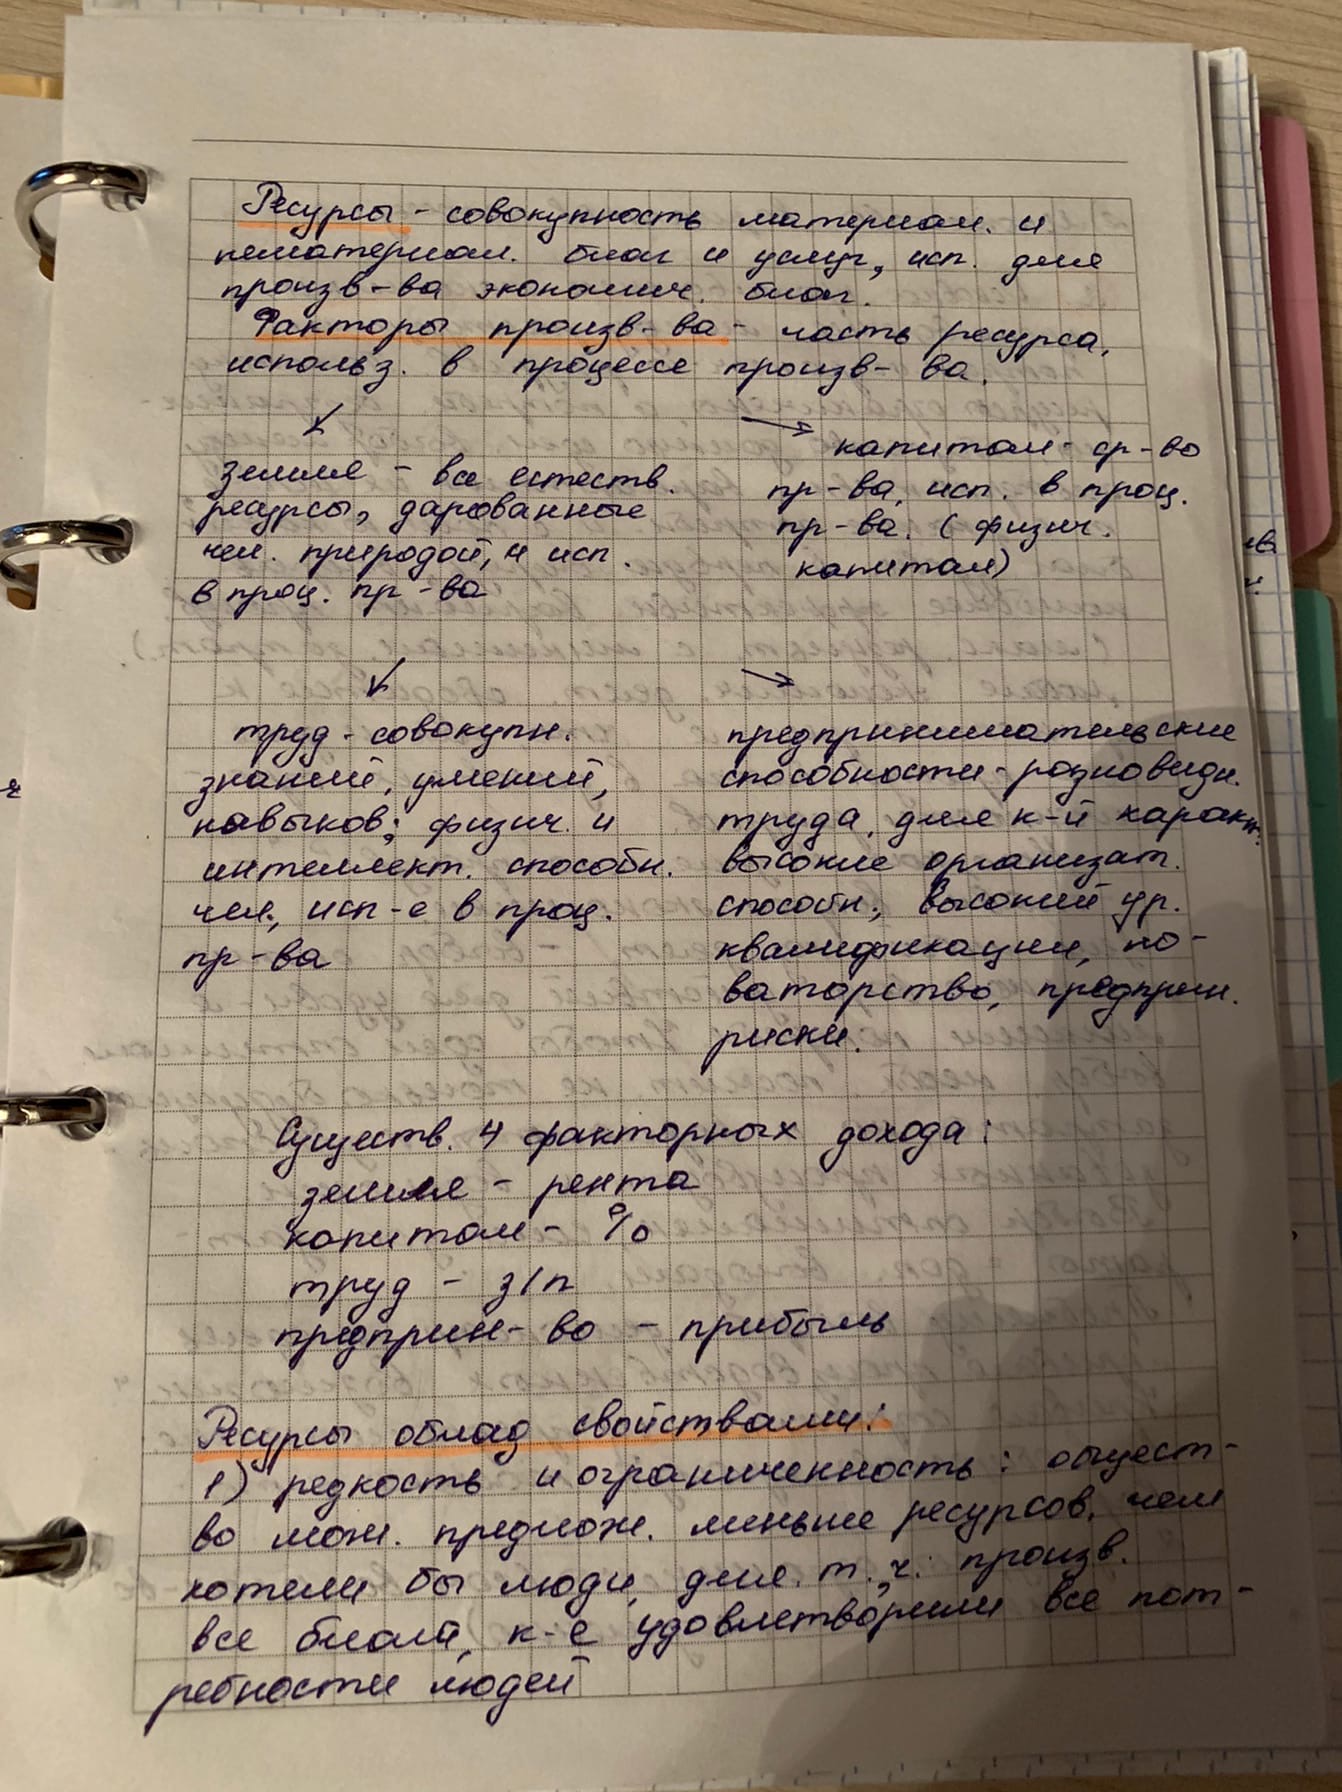 Ресурсы - совокупность материал. и
нематериал. благ и услуг, исп. для
произв-ва экономич. благ.
Факторы произв-ва - часть ресурса,
использ. в процессе произв-ва.
земля - все естеств.
ресурсы, дарованные
чел. природой, и исп.
в проц. пр-ва
капитал - ср-во
пр-ва, исп. в проц.
пр-ва. (физич.
капитал)
труд - совокупн.
знаний, умений,
навыков; физич. и
интеллект. способн.
чел., исп-е в проц.
пр-ва
предпринимательские
способности - разновидн.
труда, для к-й характ.
высокие организат.
способн., высокий ур.
квалификации, но-
ваторство, предприн.
риски.
Существ. 4 факторных дохода:
земля - рента
капитал - %
труд - з/п
предприн-во - прибыль
Ресурсы облад свойствами:
1) редкость и ограниченность: общест-
во мож. предлож. меньше ресурсов, чем
хотели бы люди, для т. ч. произв.
все блага, к-е удовлетворили все пот-
ребности людей